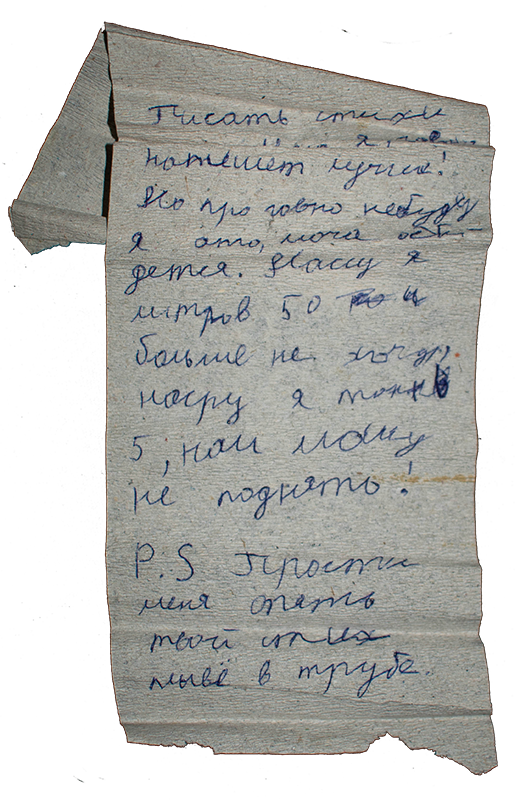 Писать стихи
я
напишет лучше!
Но про говно не буду
я это, моча
дется. Нассу я
литров 50 и
больше не хочу,
насру я тонн
5, как мошу
не поднять!
P.S Прости
меня опять
твой стих
плывё в трубе.